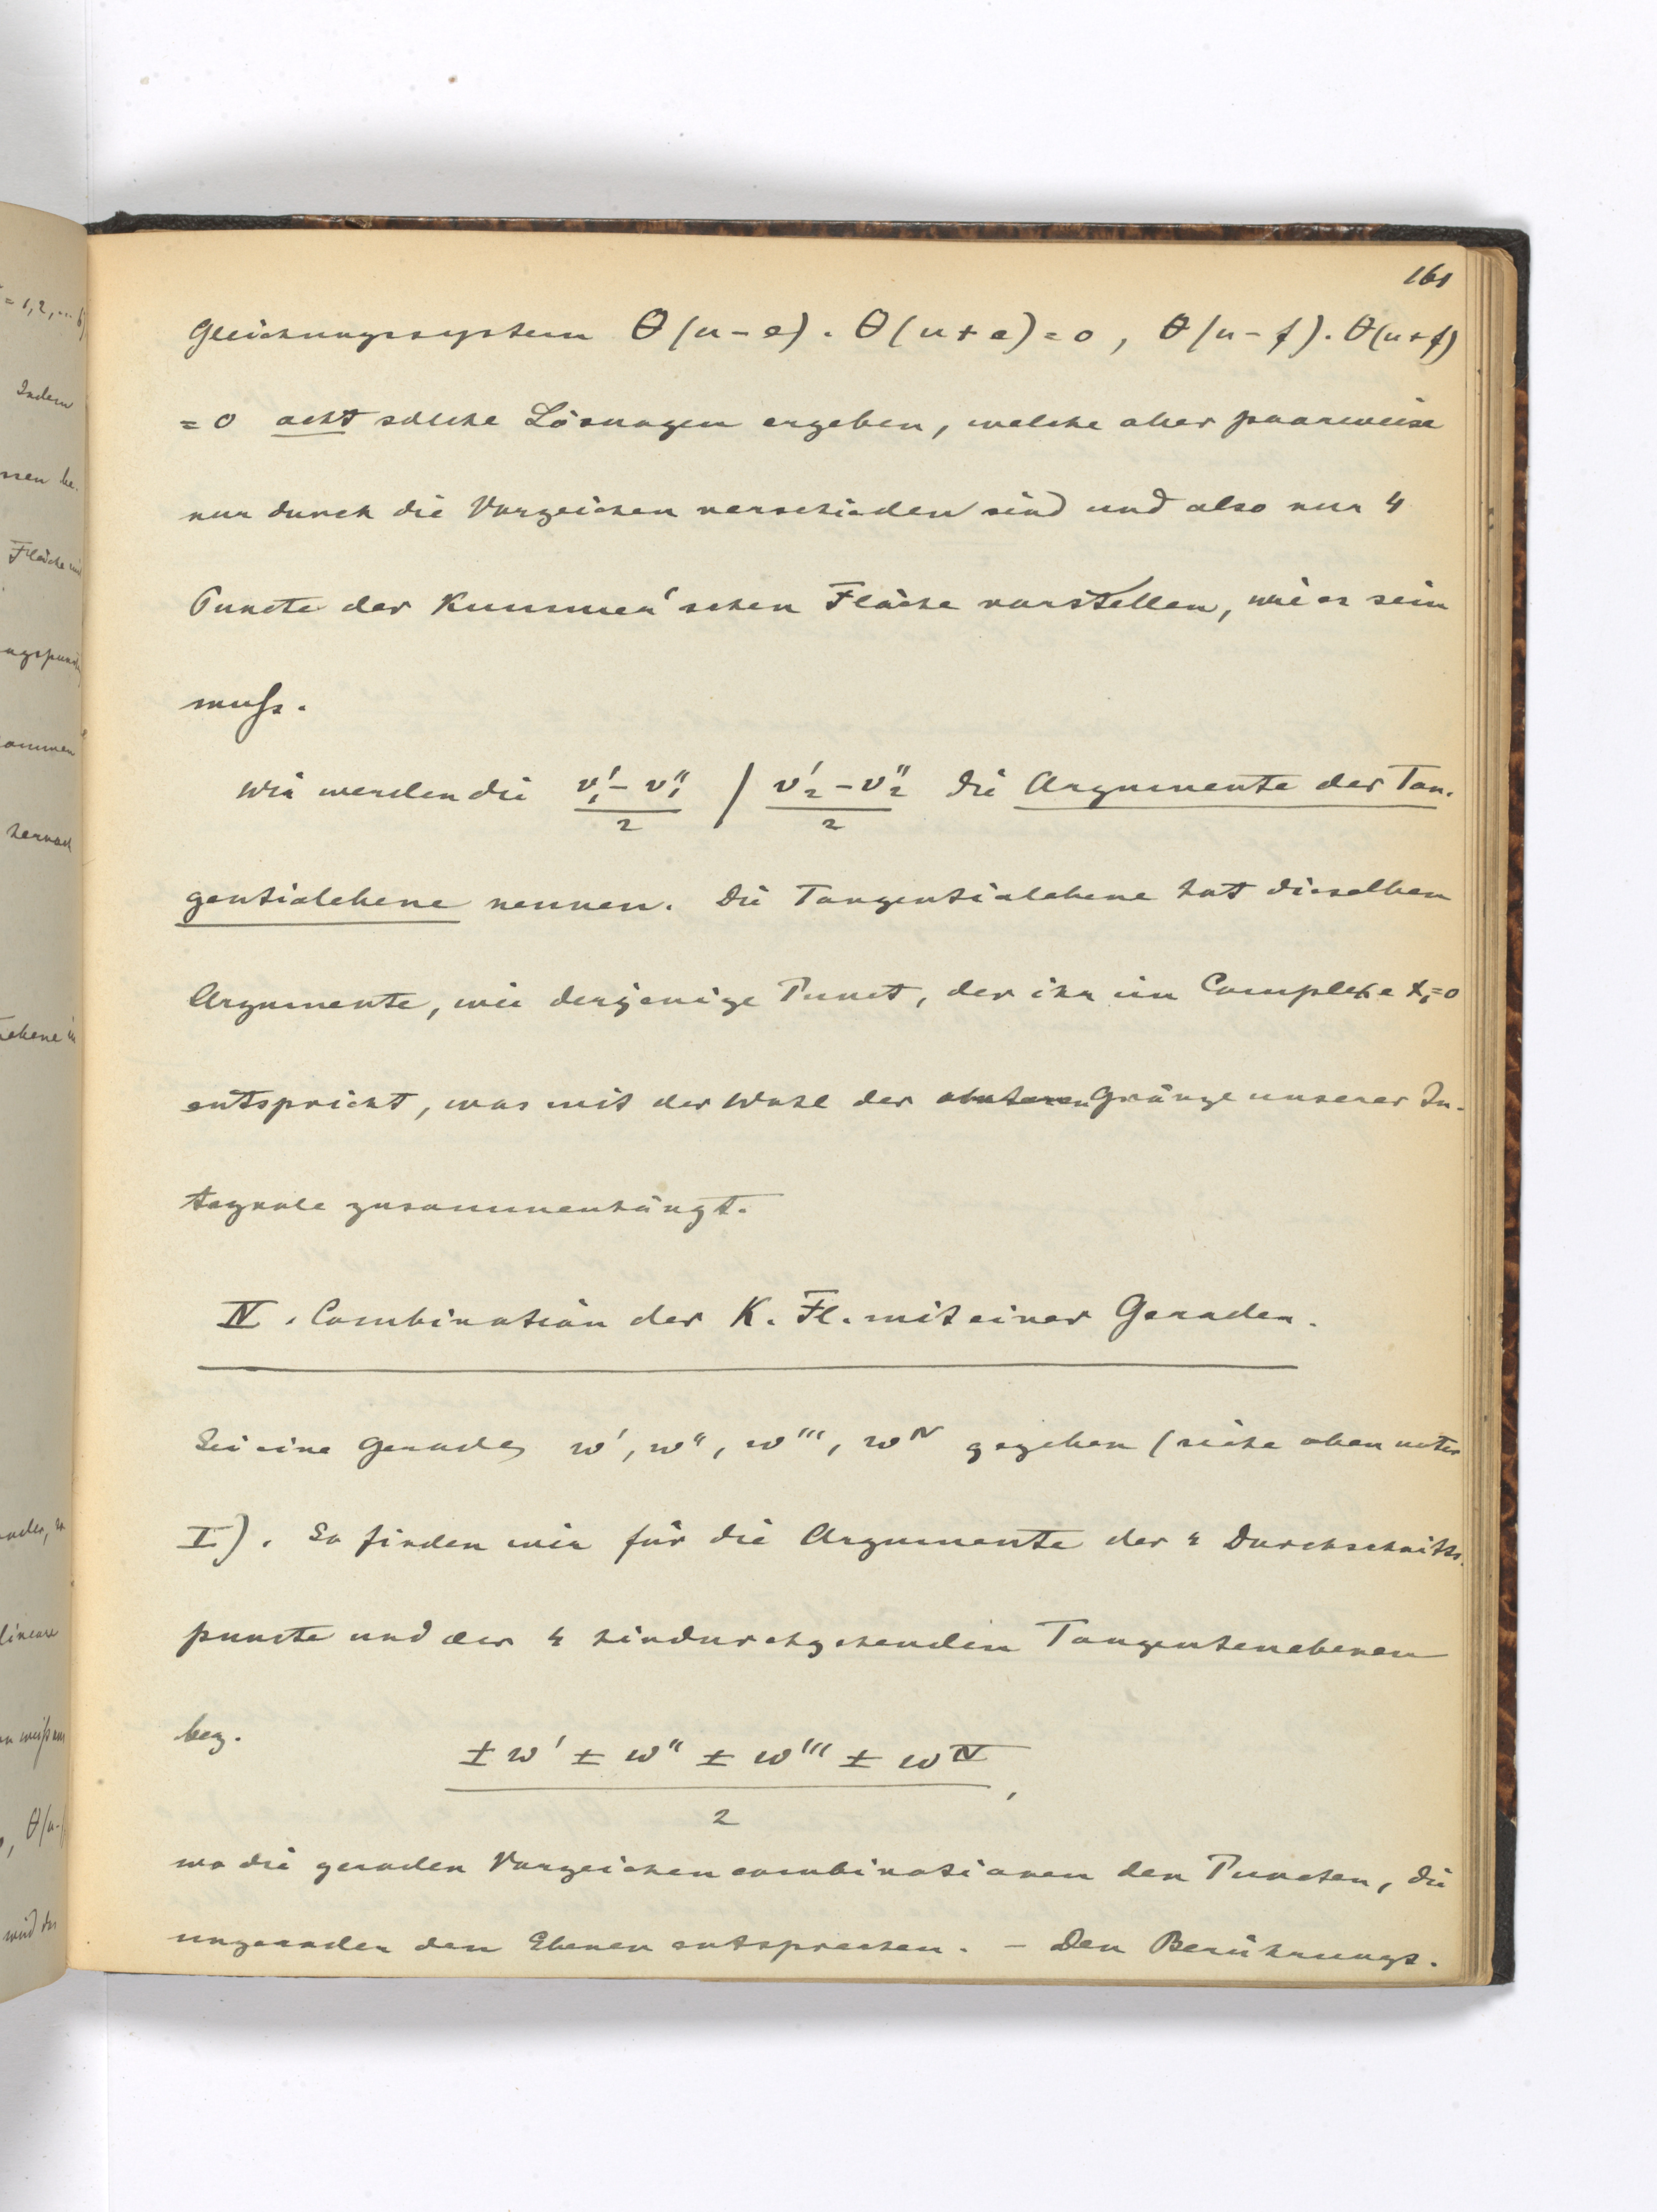 161
Gleichungssystem θ(u-e).θ(u+e)=0, θ(u-f).θ(u+f)
=0 acht solche Lösungen ergeben, welche aber paarweise
nur durch die Vorzeichen verschieden sind und also nur 4
Puncte der Kummer'schen Fläche vorstellen, wie es sein
muß.
Wir werden die (v₁'-v₁'')/2 / (v₂'-v₂'')/2 die Argumente der Tan-
gentialebene nennen. Die Tangentialebene hat dieselben
Argumente, wie derjenige Punct, der ihr im Complexe x₁=0
entspricht, was mit der Wahl der unteren Gränze unserer In-
tegrale zusammenhängt.
IV. Combination der K. Fl. mit einer Geraden.
Sei eine Gerade, w', w'', w''', w^IV gegeben (siehe oben unter
I). So finden wir für die Argumente der 4 Durchschnitts-
puncte und der 4 hindurchgehenden Tangentenebenen
bez.
(± w' ± w'' ± w''' ± w^IV)/2,
wo die geraden Vorzeichencombinationen den Puncten, die
ungeraden den Ebenen entsprechen. – Den Berührungs-
= 1,2,... 6)
Indem
ssen be-
Fläche
ungspunct
kommen
hernach
ebene in
linear
θ(u-f
wird der